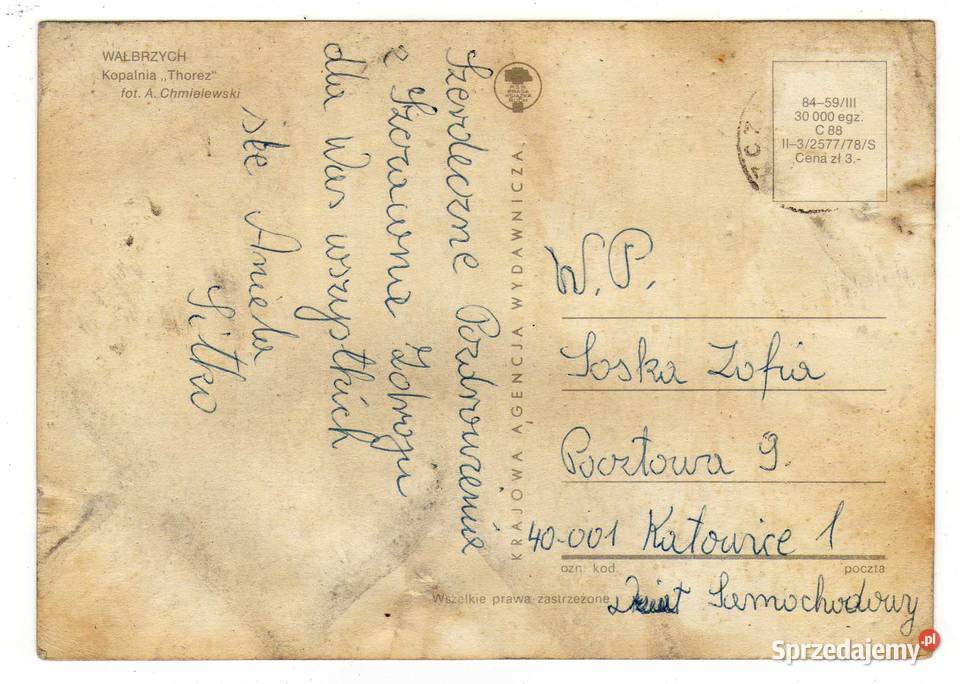 WAŁBRZYCH
Kopalnia „Thorez"
fot. A. Chmielewski
Szerdeczne Pozdrowienia
z Szczawna Zdroju
dla Was wszystkich
śle Aniela
Sitko
KRAJOWA AGENCJA WYDAWNICZA
84–59/III
30 000 egz.
C 88
II–3/2577/78/S
Cena zł 3.-
W. P.
Soska Zofia
Pocztowa 9.
40-001 Katowice 1
ozn. kod. poczta
Wszelkie prawa zastrzeżone
Dział Samochodowy
Sprzedajemy.pl